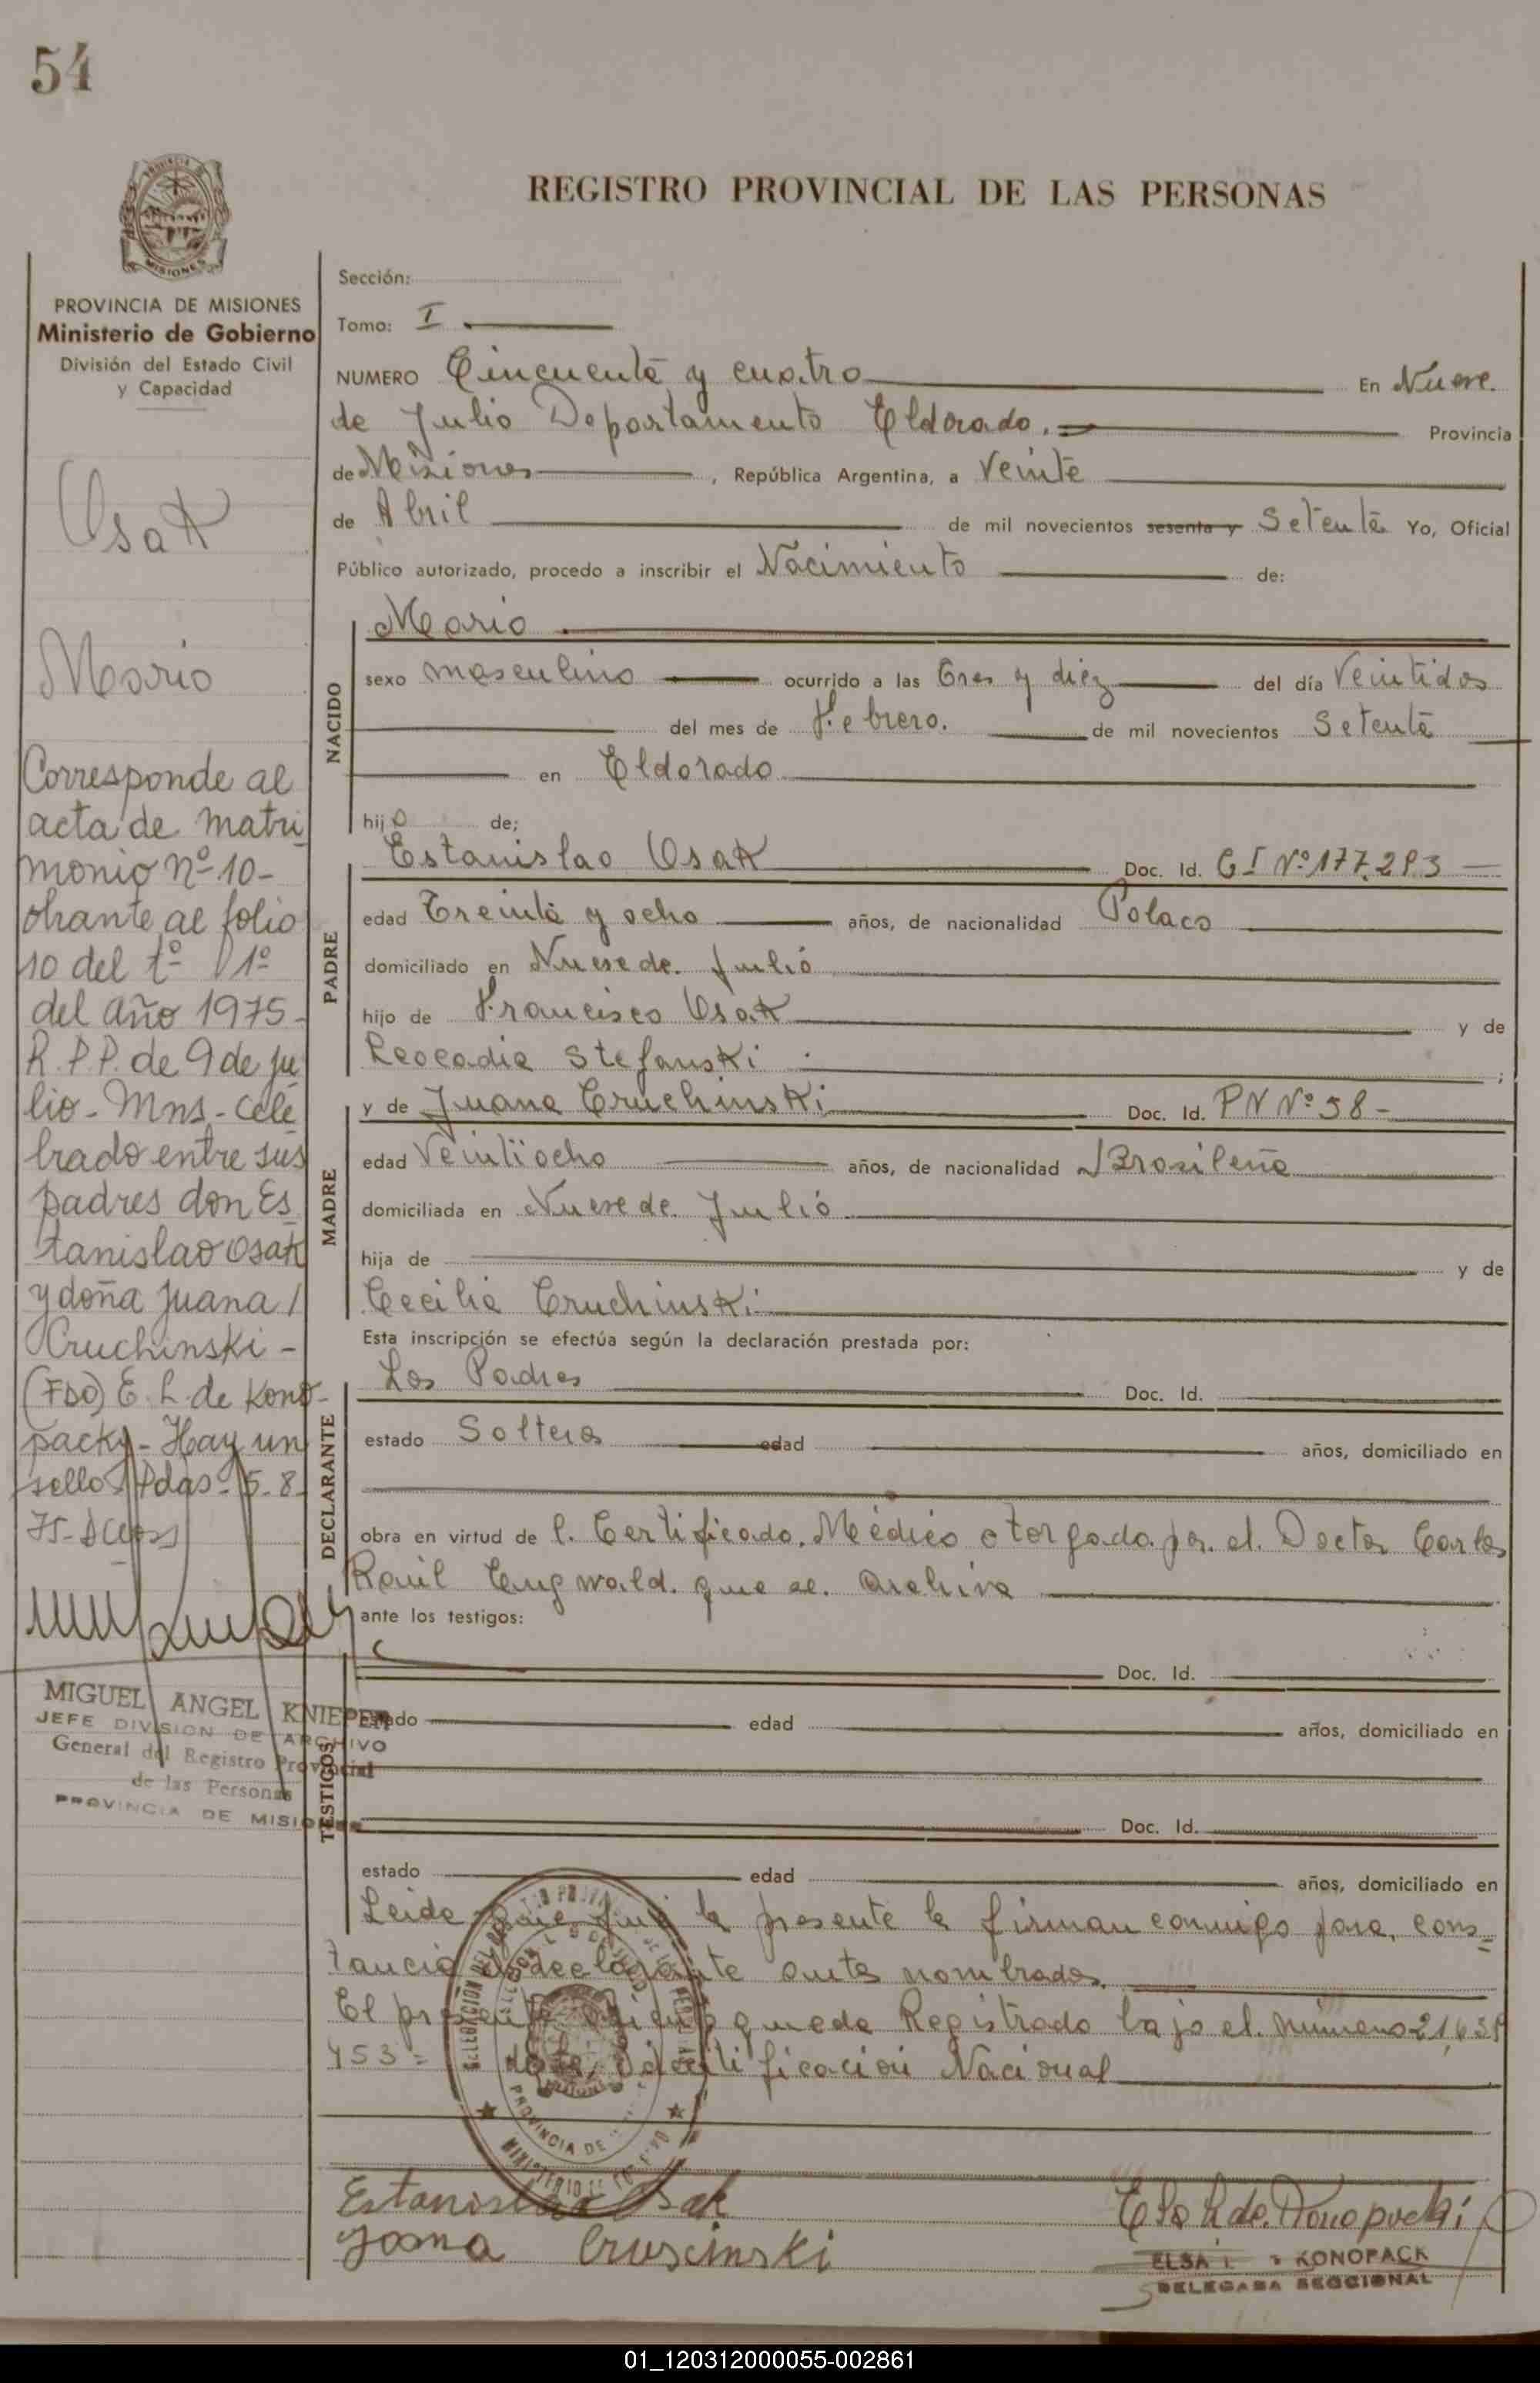 54
REGISTRO PROVINCIAL DE LAS PERSONAS
MISIONES
PROVINCIA DE MISIONES
Ministerio de Gobierno
División del Estado Civil
y Capacidad
Osak
Mario
Corresponde al
acta de matri
monio nº 10-
obrante al folio
10 del tº 1º
del año 1975-
R.P.P. de 9 de Ju
lio - Mns - cele
brado entre sus
padres don Es
tanislao Osak
y doña Juana /
Cruchinski -
(FDO) E. L. de Kono-
packy - Hay un
sello - Pdas - 5-8-
75-
MIGUEL ANGEL KNIEPER
JEFE DIVISION DE ARCHIVO
General del Registro Provincial
de las Personas
PROVINCIA DE MISIONES
Sección:
Tomo: I
NUMERO Cincuenta y cuatro En Nueve
de Julio Departamento Eldorado. Provincia
de Misiones, República Argentina, a Veinte
de Abril de mil novecientos sesenta y Setenta Yo, Oficial
Público autorizado, procedo a inscribir el Nacimiento de:
NACIDO
Mario
sexo masculino ocurrido a las Tres y diez del día Veintidos
del mes de Febrero. de mil novecientos Setenta
en Eldorado
hijo de;
PADRE
Estanislao Osak Doc. Id. C I Nº 177.293
edad Treinta y ocho años, de nacionalidad Polaco
domiciliado en Nueve de Julio
hijo de Francisco Osak y de
Leocadia Stefanski ;
MADRE
y de Juana Cruchinski Doc. Id. P N Nº 58-
edad Veintiocho años, de nacionalidad Brasileña
domiciliada en Nueve de Julio
hija de y de
Cecilia Cruchinski
Esta inscripción se efectúa según la declaración prestada por:
DECLARANTE
Los Padres Doc. Id.
estado Solteros edad años, domiciliado en
obra en virtud de l. Certificado. Médico otorgado por. el. Doctor Carlos
Raúl que se. archiva
ante los testigos:
TESTIGOS
Doc. Id.
estado edad años, domiciliado en
Doc. Id.
estado edad años, domiciliado en
Leida que fue la presente la firman conmigo para, cons=
tancia declarante antes nombrados.
El presente queda Registrado bajo el. número 21,639
453= Identificación Nacional
PROVINCIA DE
Estanislao Osak
Joana Cruscinski
Elsa L de. Konopacki
ELSA L KONOPACK
DELEGADA SECCIONAL
01_120312000055-002861